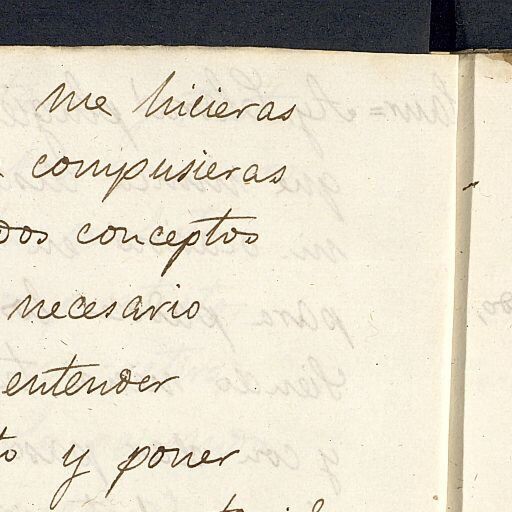 me hicieras
compusieras
dos conceptos
necesario
entender
to y poner